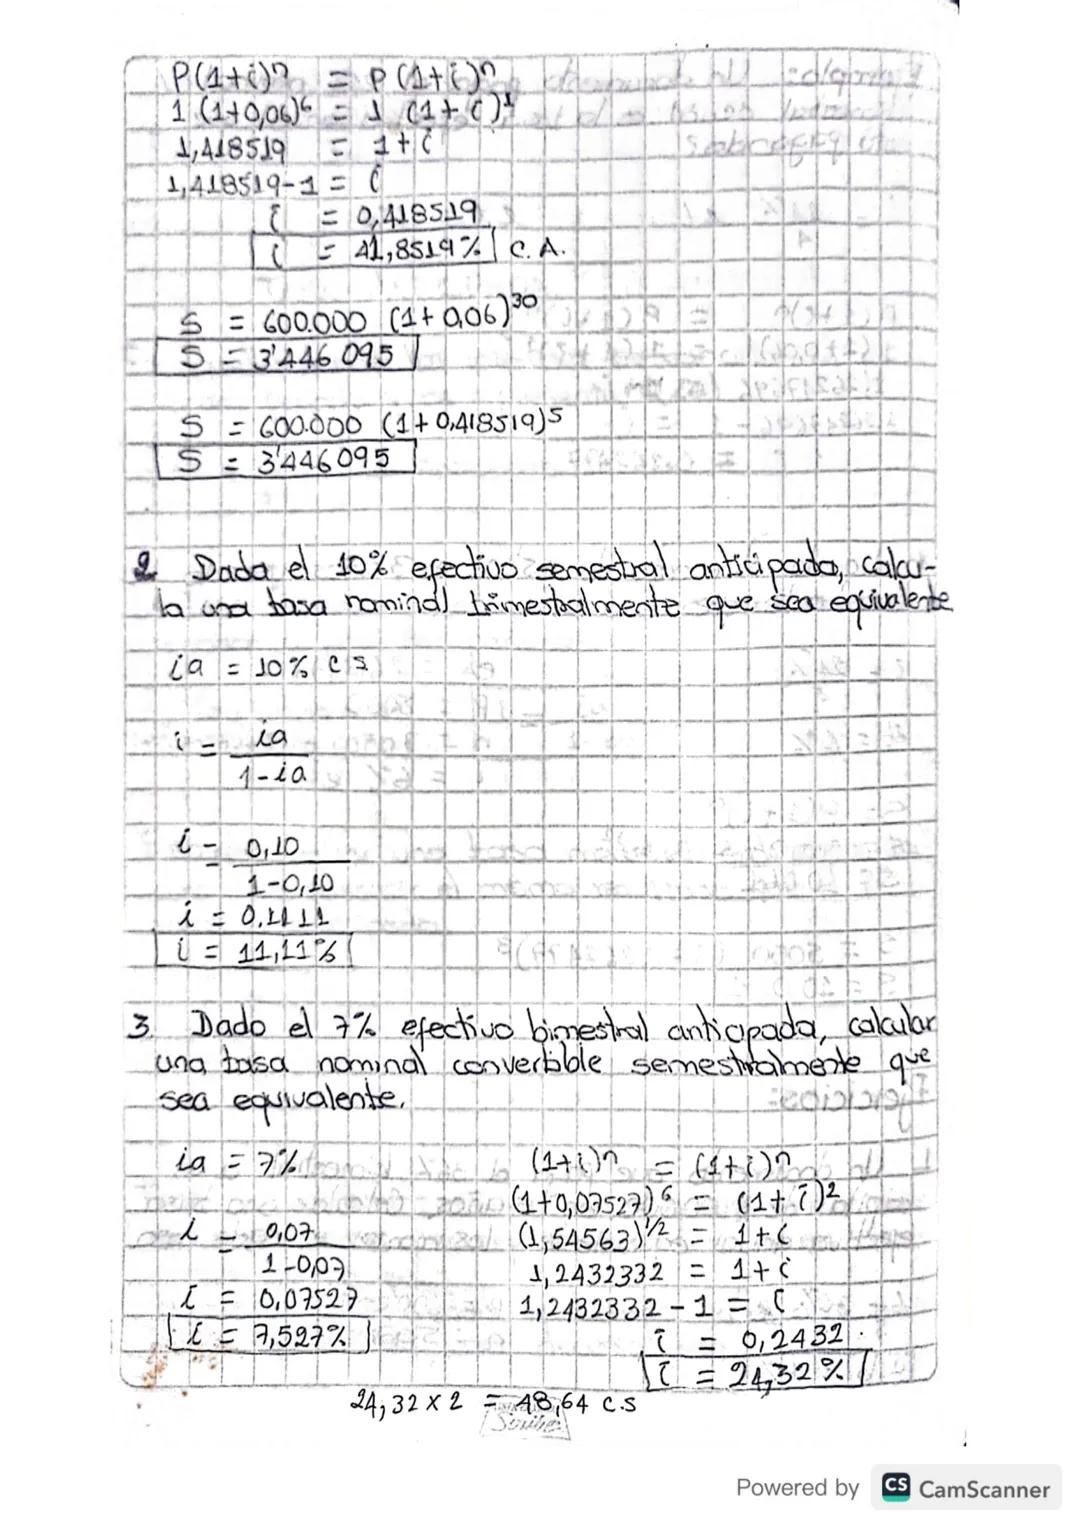 P(1+i)ⁿ = P(1+i)ⁿ
1 (1+0,06)⁶ = 1 (1+i)¹
1,418519 = 1+i
1,418519-1 = i
i = 0,418519
i = 41,8519% C.A.
S = 600.000 (1+0,06)³⁰
S = 3'446 095
S = 600.000 (1+0,418519)⁵
S = 3'446095
2 Dada el 10% efectivo semestral anticipada, calcu-
la una tasa nominal trimestralmente que sea equivalente
ia = 10% C S
i = ia
1-ia
i = 0,10
1-0,10
i = 0,1111
i = 11,11%
3. Dado el 7% efectivo bimestral anticipada, calcular
una tasa nominal convertible semestralmente que
sea equivalente.
ia = 7%
i = 0,07
1-0,07
i = 0,07527
i = 7,527%
(1+i)ⁿ = (1+i)ⁿ
(1+0,07527)⁶ = (1+i)²
(1,54563)¹/² = 1+i
1,2432332 = 1+i
1,2432332 - 1 = i
i = 0,2432
i = 24,32%
24,32 x 2 = 48,64 C.S
Scribe
Powered by CS CamScanner